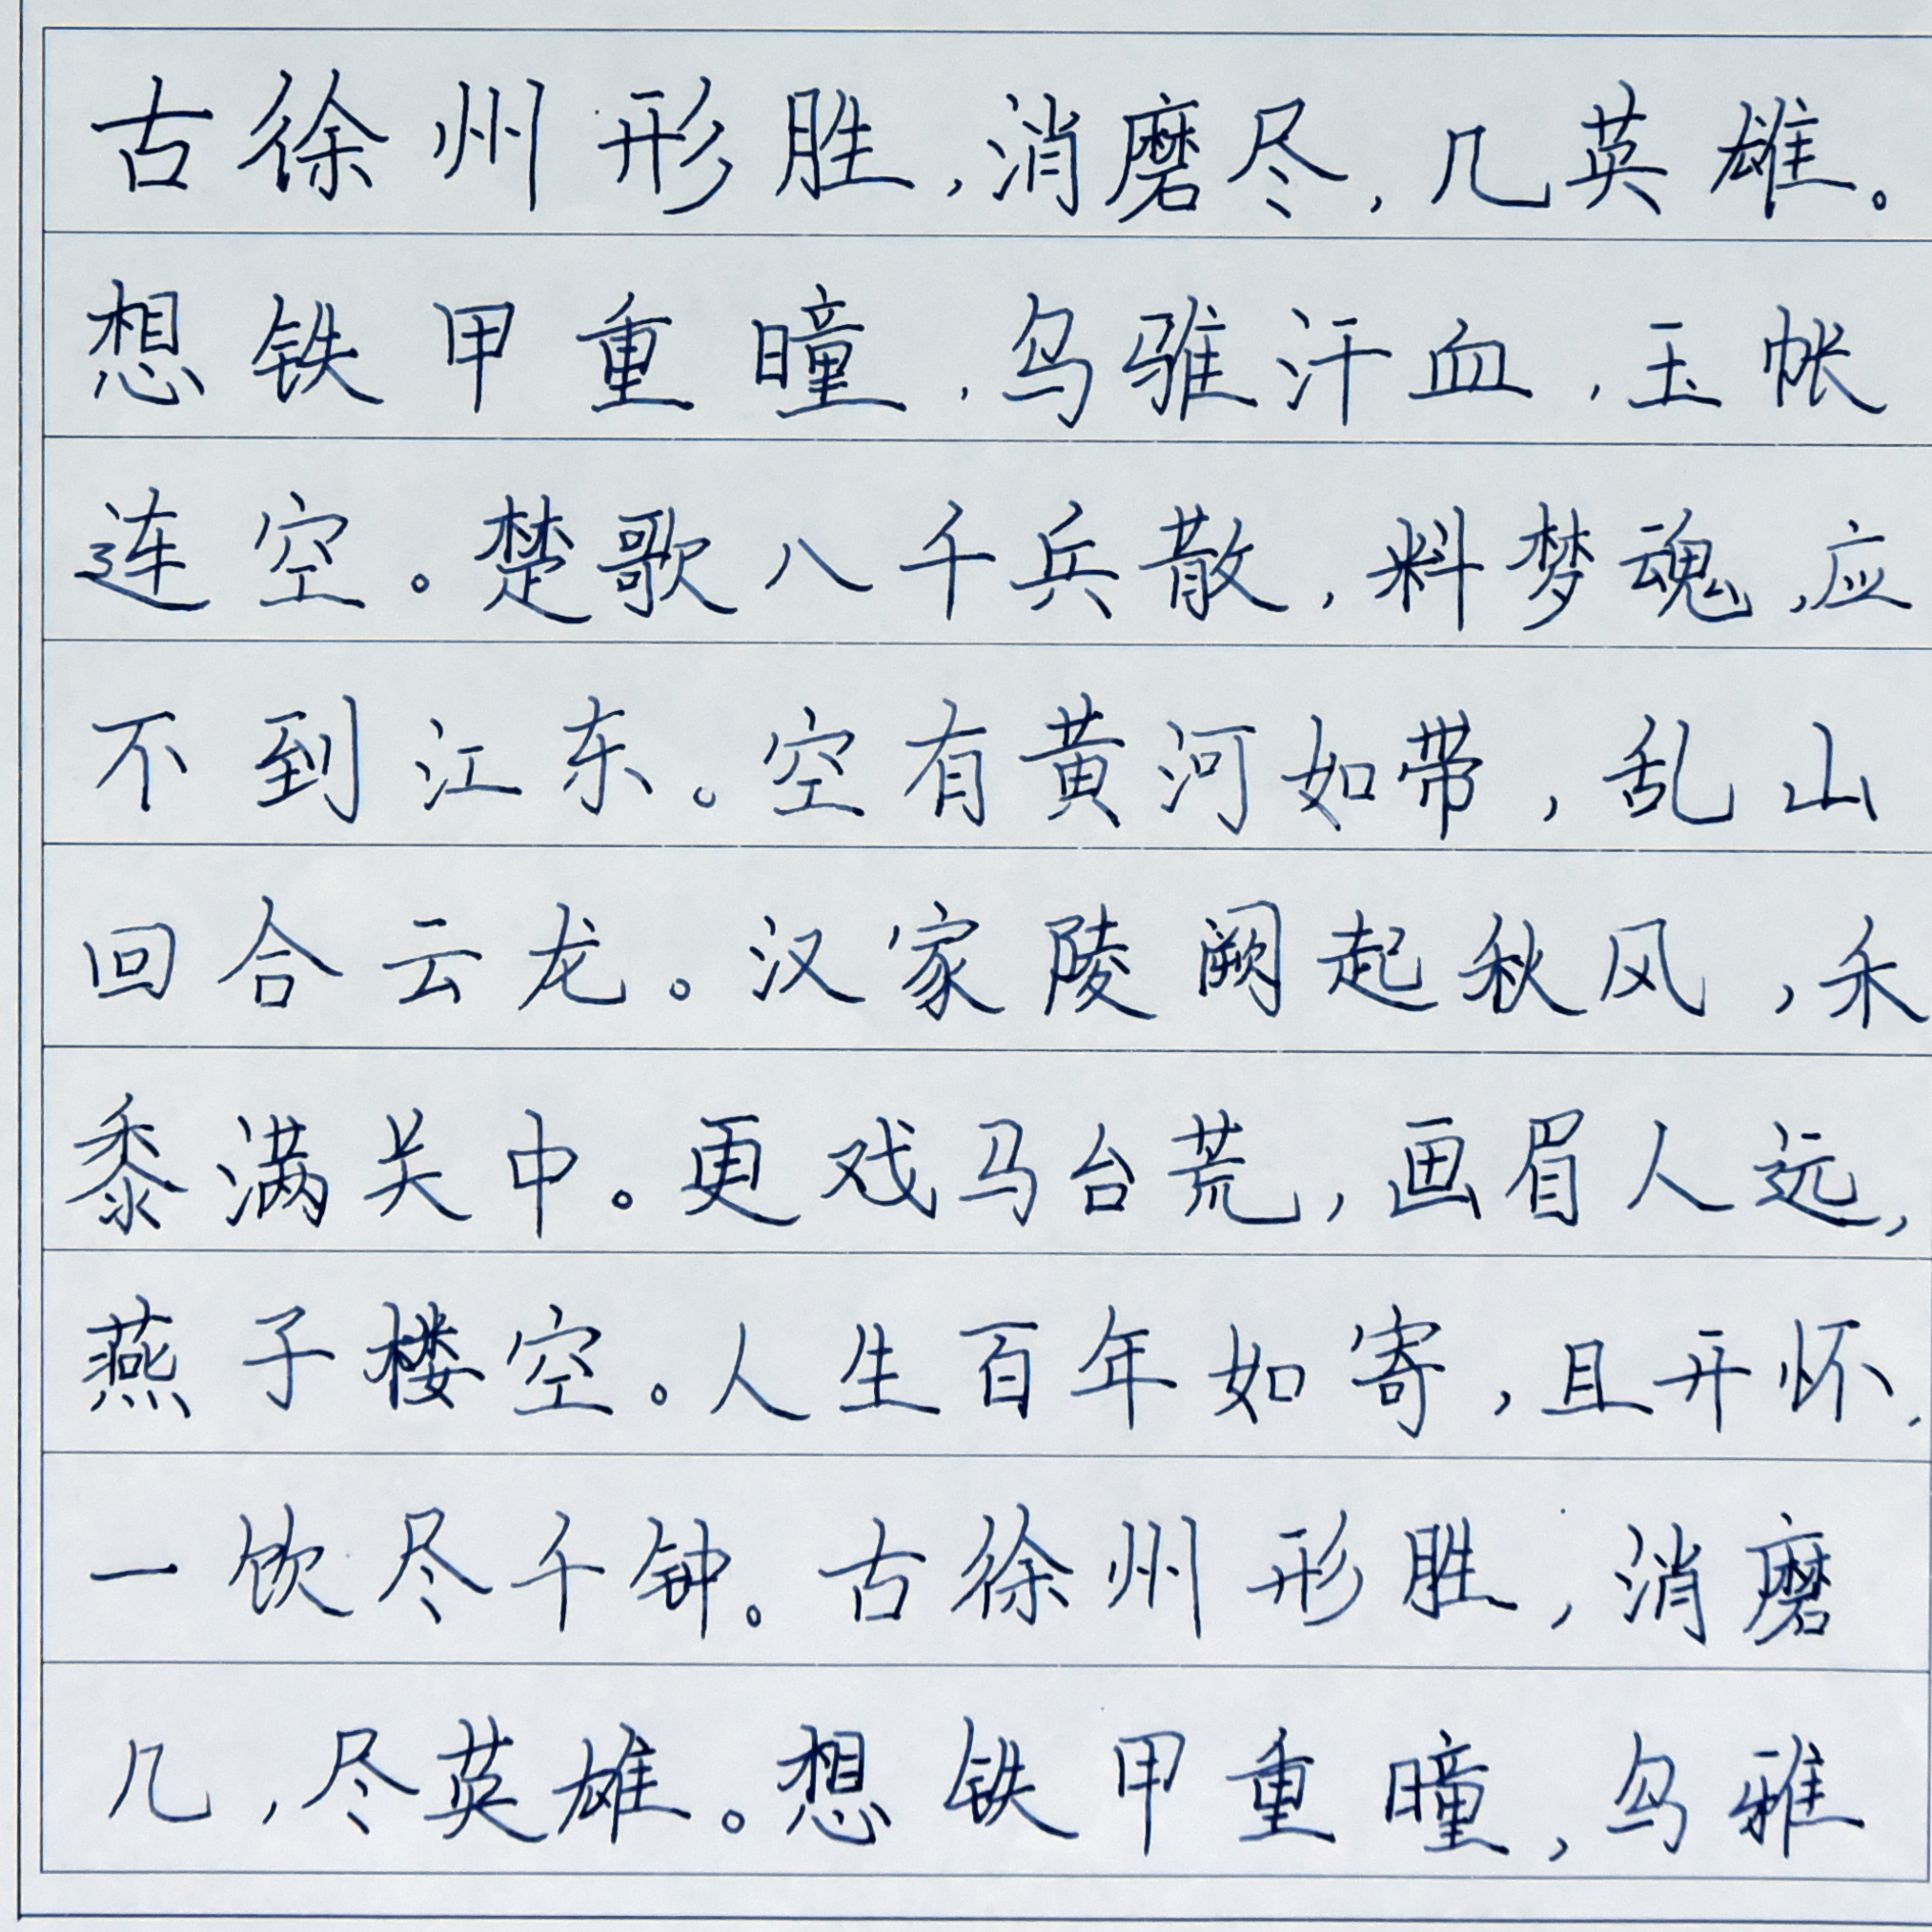 古徐州形胜,消磨尽,几英雄。
想铁甲重曈,乌骓汗血,玉帐
连空。楚歌八千兵散,料梦魂,应
不到江东。空有黄河如带,乱山
回合云龙。汉家陵阙起秋风,禾
黍满关中。更戏马台荒,画眉人远,
燕子楼空。人生百年如寄,且开怀,
一饮尽千钟。古徐州形胜,消磨
几,尽英雄。想铁甲重曈,乌雅